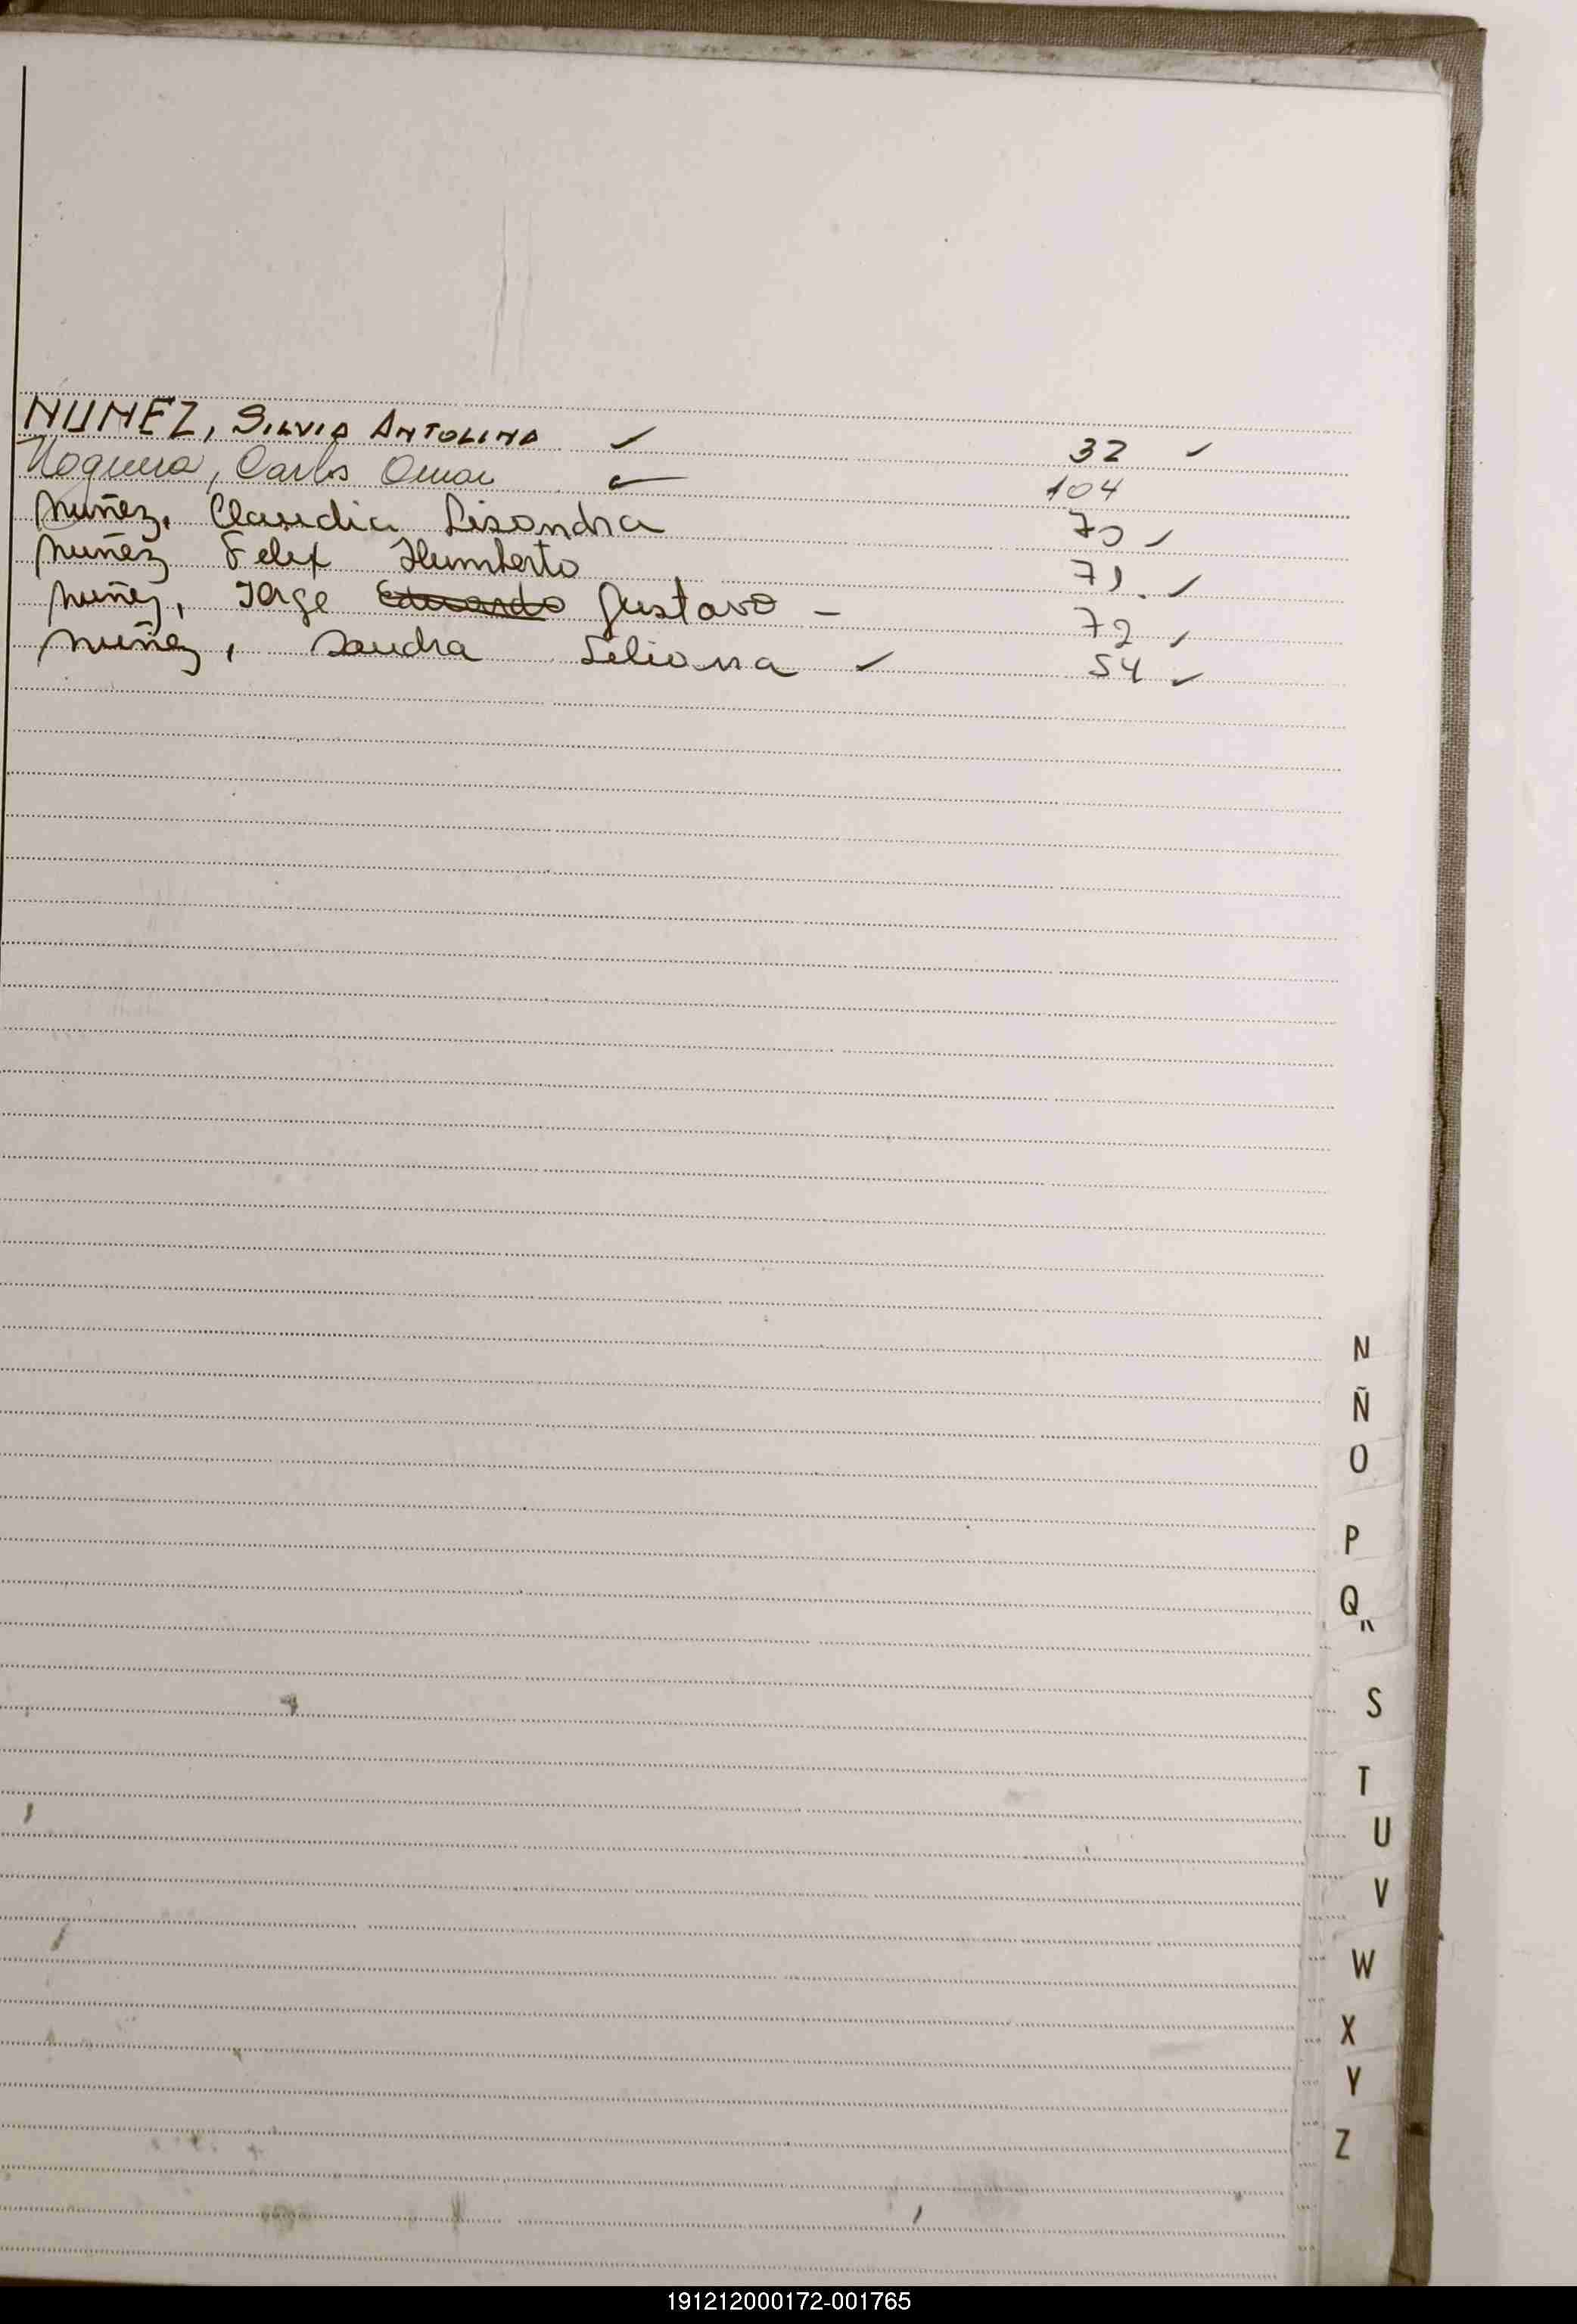 NUNEZ, SILVIA ANTOLINA ✓ 32 ✓
Noguera, Carlos Omar ✓ 104
Nuñez, Claudia Lisandra 70 ✓
Nuñez Felix Humberto 71. ✓
Nuñez, Jorge Eduardo Gustavo - 72 ✓
Nuñez, Sandra Liliana ✓ 54 ✓
N
Ñ
O
P
Q
S
T
U
V
W
X
Y
Z
191212000172-001765